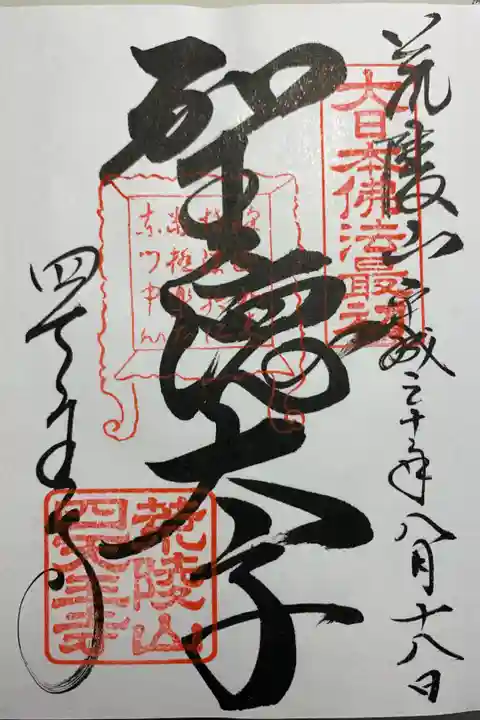 荒陵山 平成三十年八月十八日
大日本佛法最初
聖徳太子
四天王寺
荒陵山
四天王寺